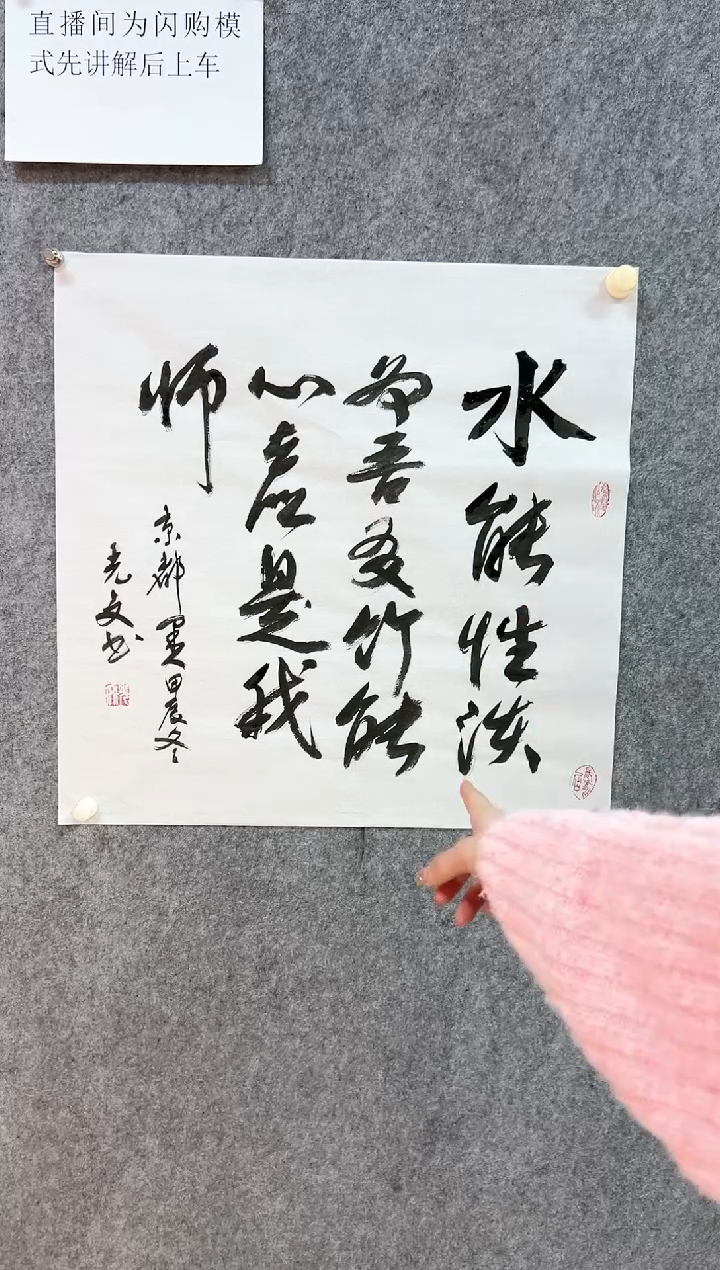 直播间为闪购模
式先讲解后上车
水能性淡
为吾友竹能
心虚是我
师
京都 甲辰冬
光文书